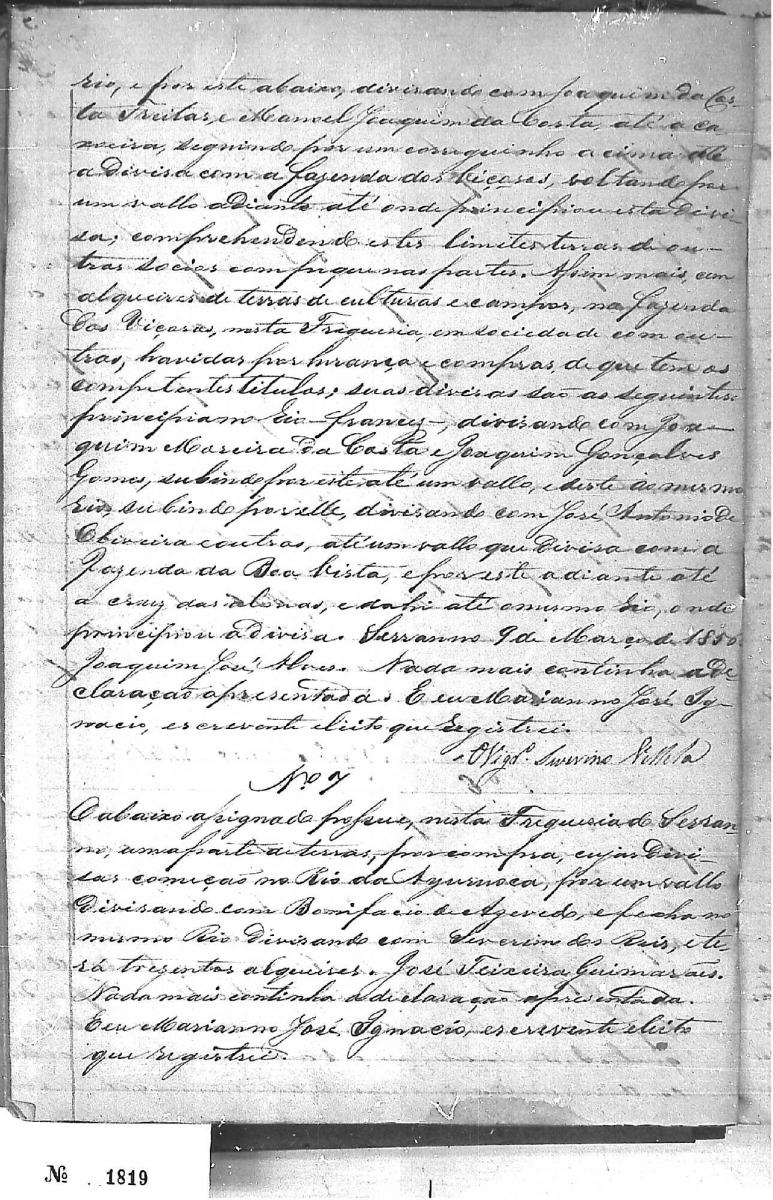 rio, e por este abaixo, divisando com Joaquim da Cos-
ta Freitas, e Manoel Joaquim da Costa, até a ca
xoeira, seguindo por um correguinho a cima até
a divisa com a fazenda dos Viçosos, voltando por
um vallo adiante até onde principiou esta divi-
sa; comprehendendo estes limites terras de ou-
tros socios com piquenas partes. Assim mais, cem
alqueires de terras de culturas e campos, na fazenda
dos Viçosos, nesta Freguesia, em sociedade com ou-
tros, havidas por herança e compras, de que tem os
competentes titulos; suas divisas são as seguintes:
principia no Rio-francez-, divisando com Joa-
quim Moreira da Costa e Joaquim Gonçalves
Gomes, subindo por este até um vallo, e deste ao mesmo
rio, subindo por elle, divisando com José Antonio de
Oliveira e outros, até um vallo que divisa com a
Fazenda da Boa Vista, e por este adiante até
a cruz das almas, e dahi até o mesmo Rio, onde
principiou a divisa. Serranno 9 de Março de 1856
Joaquim José Alves. Nada mais continha a de
claração apresentada. E eu Marianno José Ig-
nacio, escrevente eleito que registrei.
O Vigr.º Severino Villela
Nº 7
O abaixo assignado possue, nesta Freguesia do Serran
no, uma parte de terras, por compra, cujas divi-
sas começão no Rio da Ayuruoca, por um vallo
divisando com Bonifacio de Azevedo, e fecha no
mesmo Rio divisando com Severino dos Reis, e te-
rá tresentos alqueires. José Teixeira Guimarães.
Nada mais continha a declaração apresentada.
E eu Marianno José Ignacio, escrevente eleito
que registrei.
Nº 1819